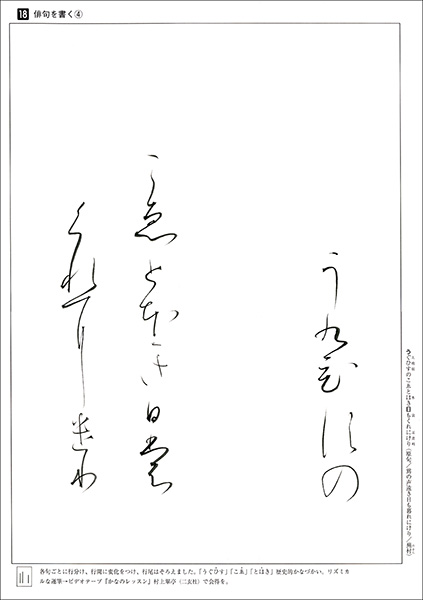 18 俳句を書く④
うくひすの
こゑとほき日も
くれにけり
うぐひすのこゑとほき日もくれにけり(原句/鶯の声遠き日も暮れにけり/蕪村)
各句ごとに行分け、行間に変化をつけ、行尾はそろえました。「うぐひす」「こゑ」「とほき」歴史的かなづかい。リズミカ
ルな運筆→ビデオテープ『かなのレッスン』村上翠亭(二玄社)で会得を。